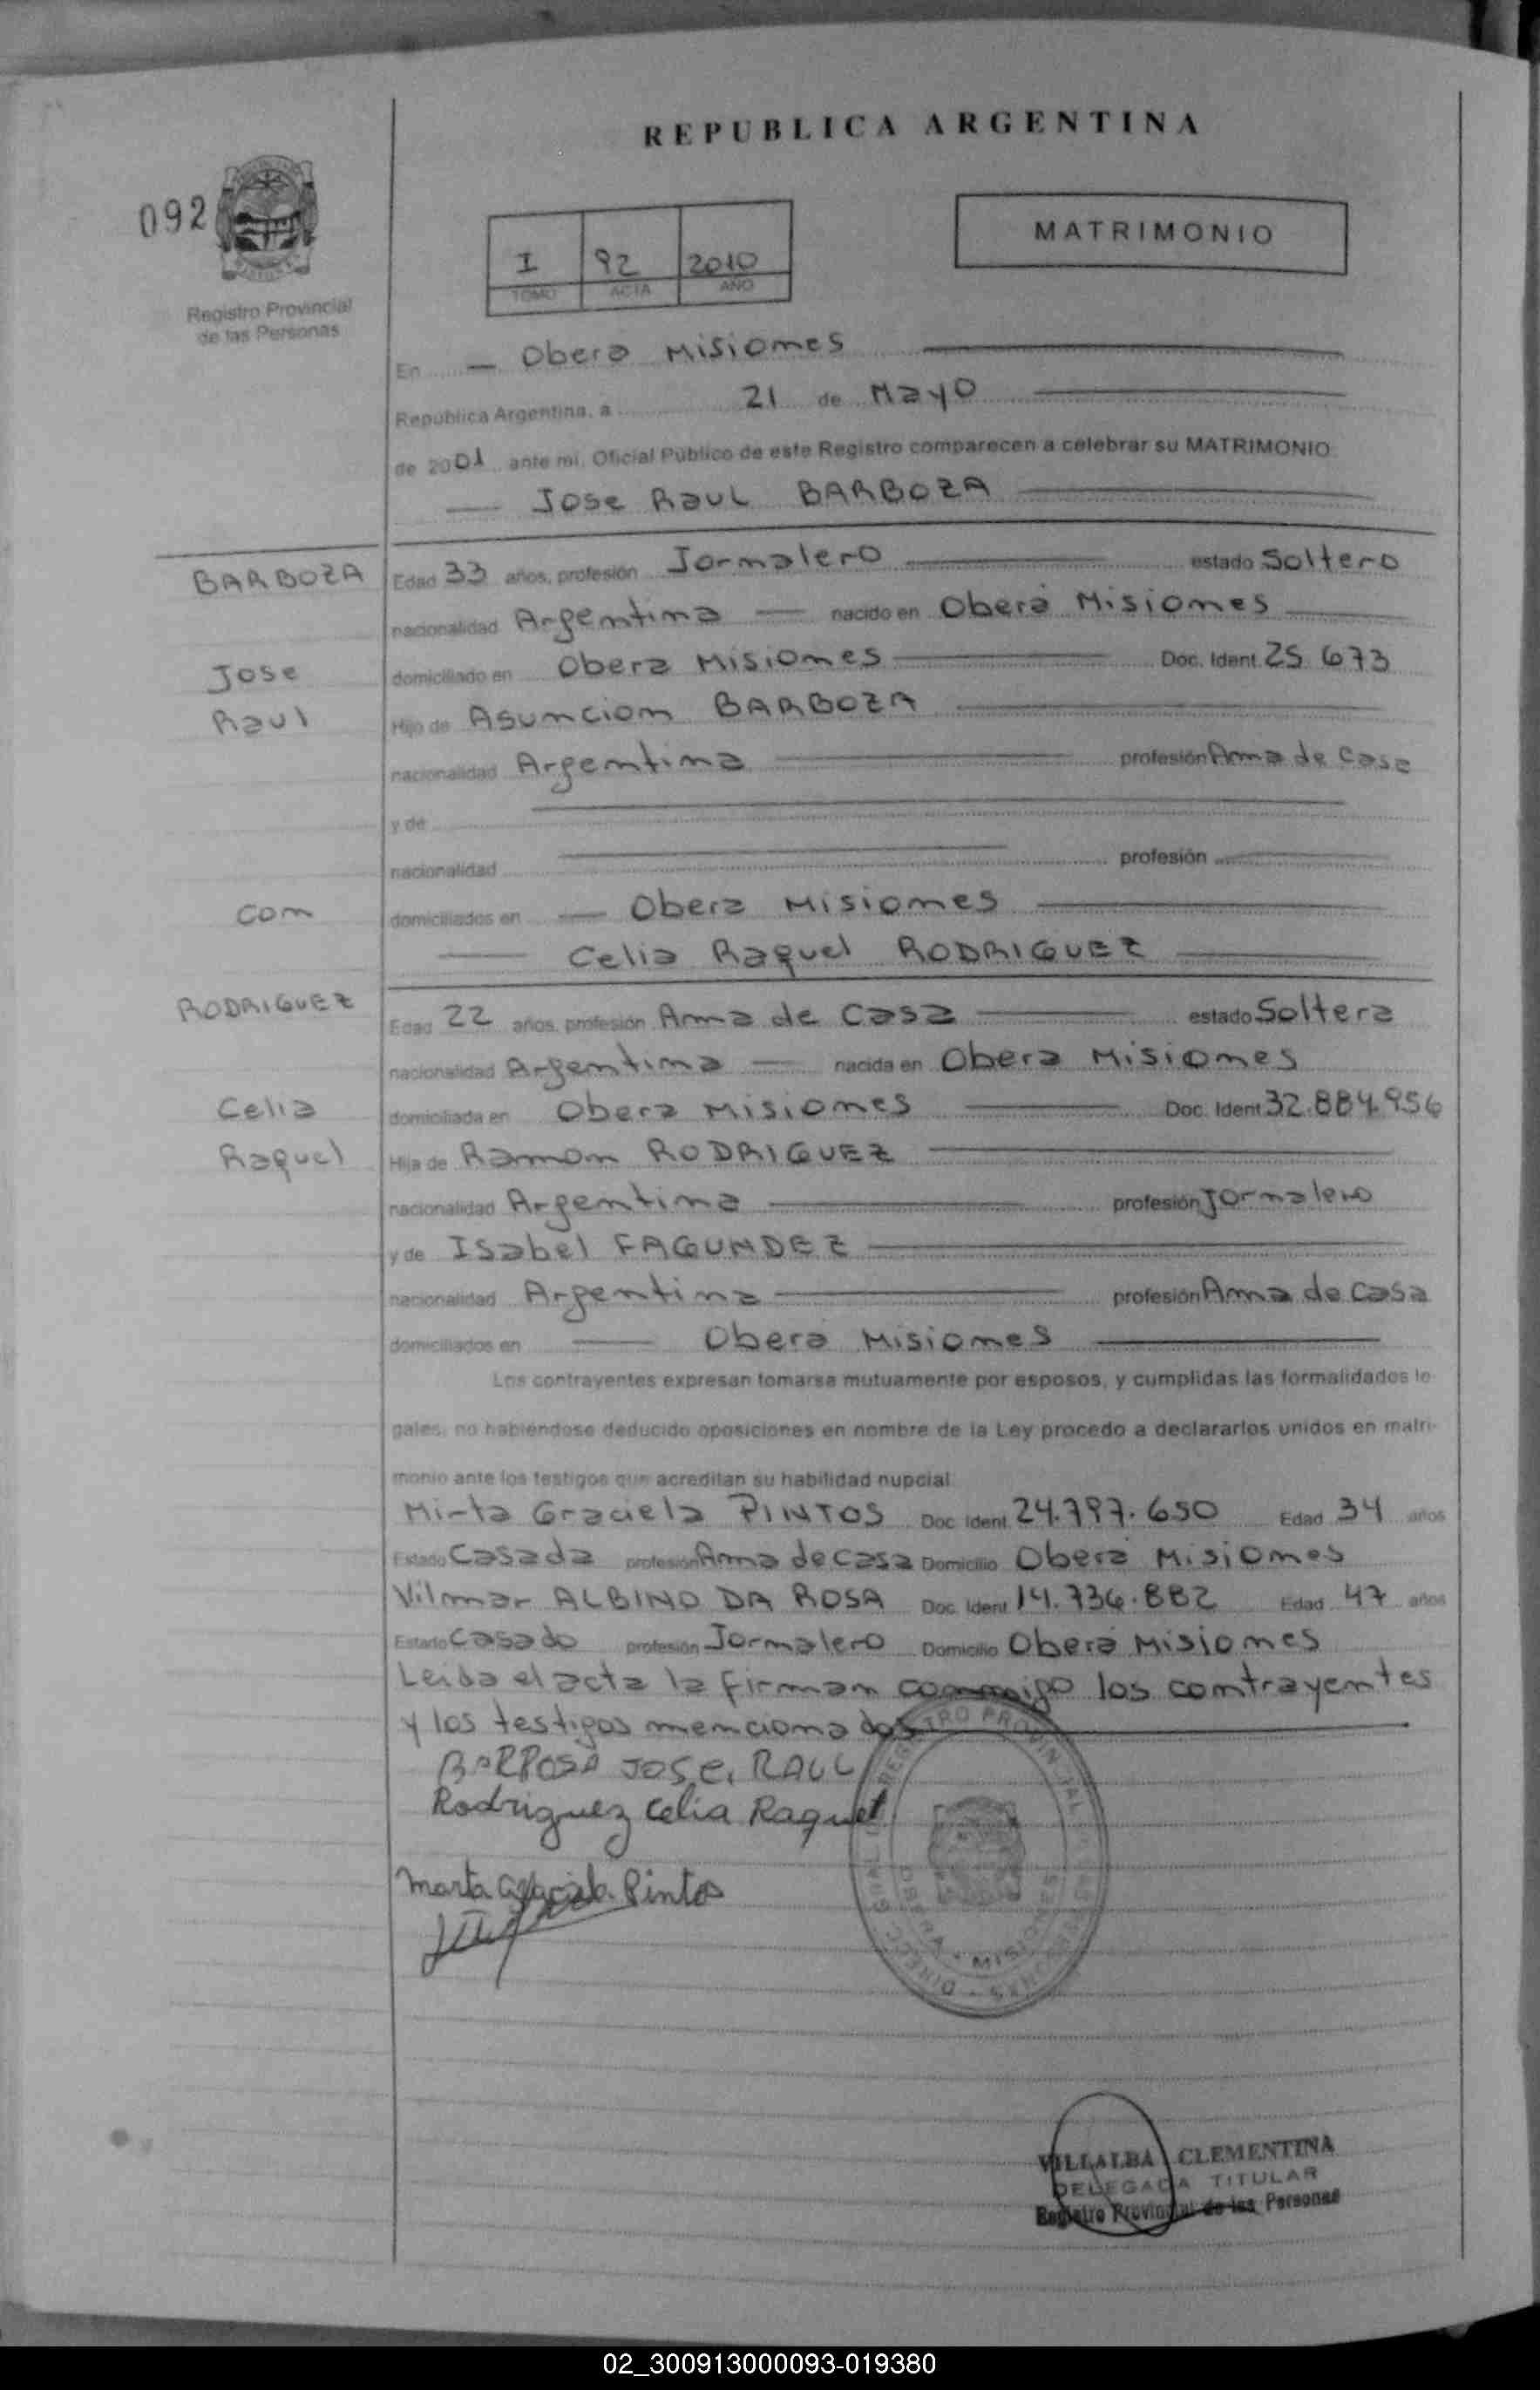 REPUBLICA ARGENTINA
092
MATRIMONIO
I 92 2010
TOMO ACTA AÑO
Registro Provincial
de las Personas
En Obera Misiones
República Argentina, a 21 de Mayo
de 2001 ante mi, Oficial Público de este Registro comparecen a celebrar su MATRIMONIO
Jose Raul BARBOZA
BARBOZA Edad 33 años, profesión Jornalero estado Soltero
nacionalidad Argentina nacido en Oberá Misiones
Jose domiciliado en Obera Misiones Doc. Ident. 25 673
Raul Hijo de Asuncion BARBOZA
nacionalidad Argentina profesión Ama de Casa
y de
nacionalidad profesión
Con domiciliados en Obera Misiones
Celia Raquel RODRIGUEZ
RODRIGUEZ Edad 22 años, profesión Ama de Casa estado Soltera
nacionalidad Argentina nacida en Obera Misiones
Celia domiciliada en Obera Misiones Doc. Ident. 32.884.956
Raquel Hija de Ramon RODRIGUEZ
nacionalidad Argentina profesión Jornalero
y de Isabel FAGUNDEZ
nacionalidad Argentina profesión Ama de Casa
domiciliados en Obera Misiones
Los contrayentes expresan tomarse mutuamente por esposos, y cumplidas las formalidades le-
gales, no habiéndose deducido oposiciones en nombre de la Ley procedo a declararlos unidos en matri-
monio ante los testigos que acreditan su habilidad nupcial
Mirta Graciela PINTOS Doc. Ident. 24.797.650 Edad 34 años
Estado Casada profesión Ama de casa Domicilio Oberá Misiones
Vilmar ALBINO DA ROSA Doc. Ident. 14.736.882 Edad 47 años
Estado Casado profesión Jornalero Domicilio Oberá Misiones
Leida el acta la firman conmigo los contrayentes
y los testigos mencionados
BARBOSA JOSE RAUL
Rodriguez Celia Raquel
Pintos
OBERA - MISIONES
VILLALBA CLEMENTINA
DELEGADA TITULAR
Registro Provincial de las Personas
02_300913000093-019380